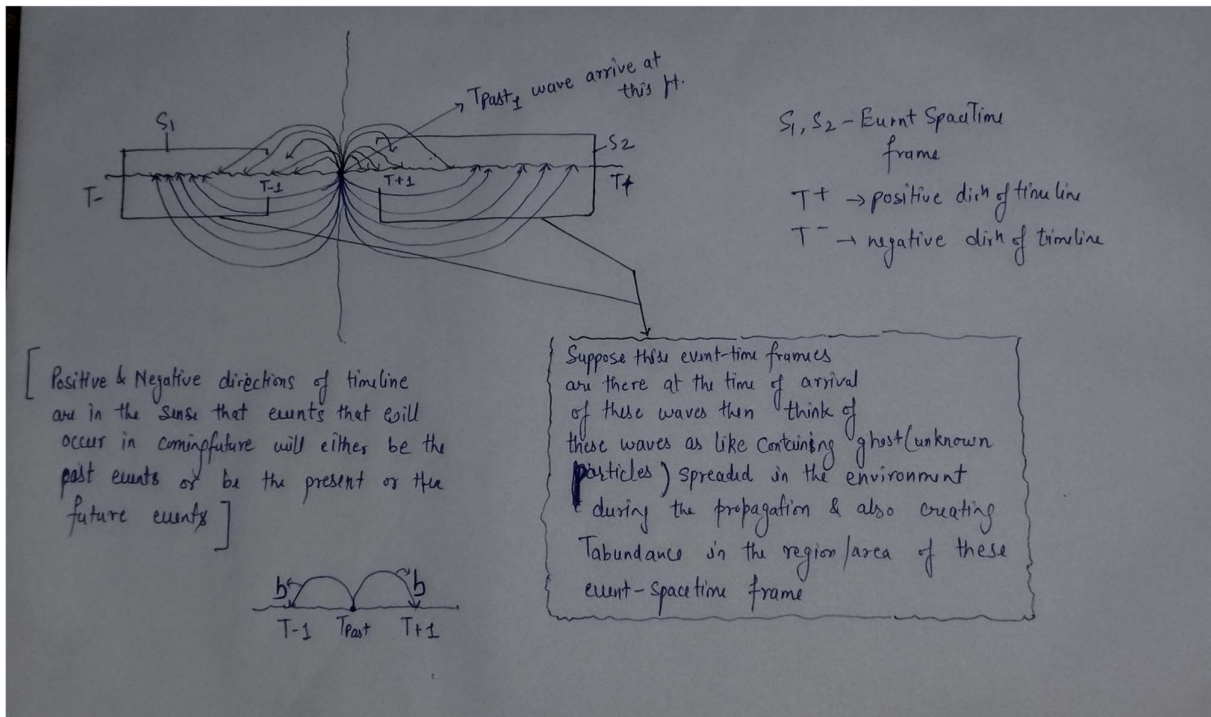 Tpast1 wave arrive at
this pt.
S1
S2
T-
T-1
T+1
T+
S1, S2 - Eurnt SpaceTime
frame
T+ → positive dirn of time line
T- → negative dirn of timeline
[Positive & Negative directions of timeline
are in the sense that events that will
occur in coming future will either be the
past events or be the present or the
future events]
Suppose these event-time frames
are there at the time of arrival
of these waves then think of
these waves as like containing ghost (unknown
particles) spreaded in the environment
during the propagation & also creating
Tabundance in the region/area of these
event-spacetime frame
b b
T-1 TPast T+1